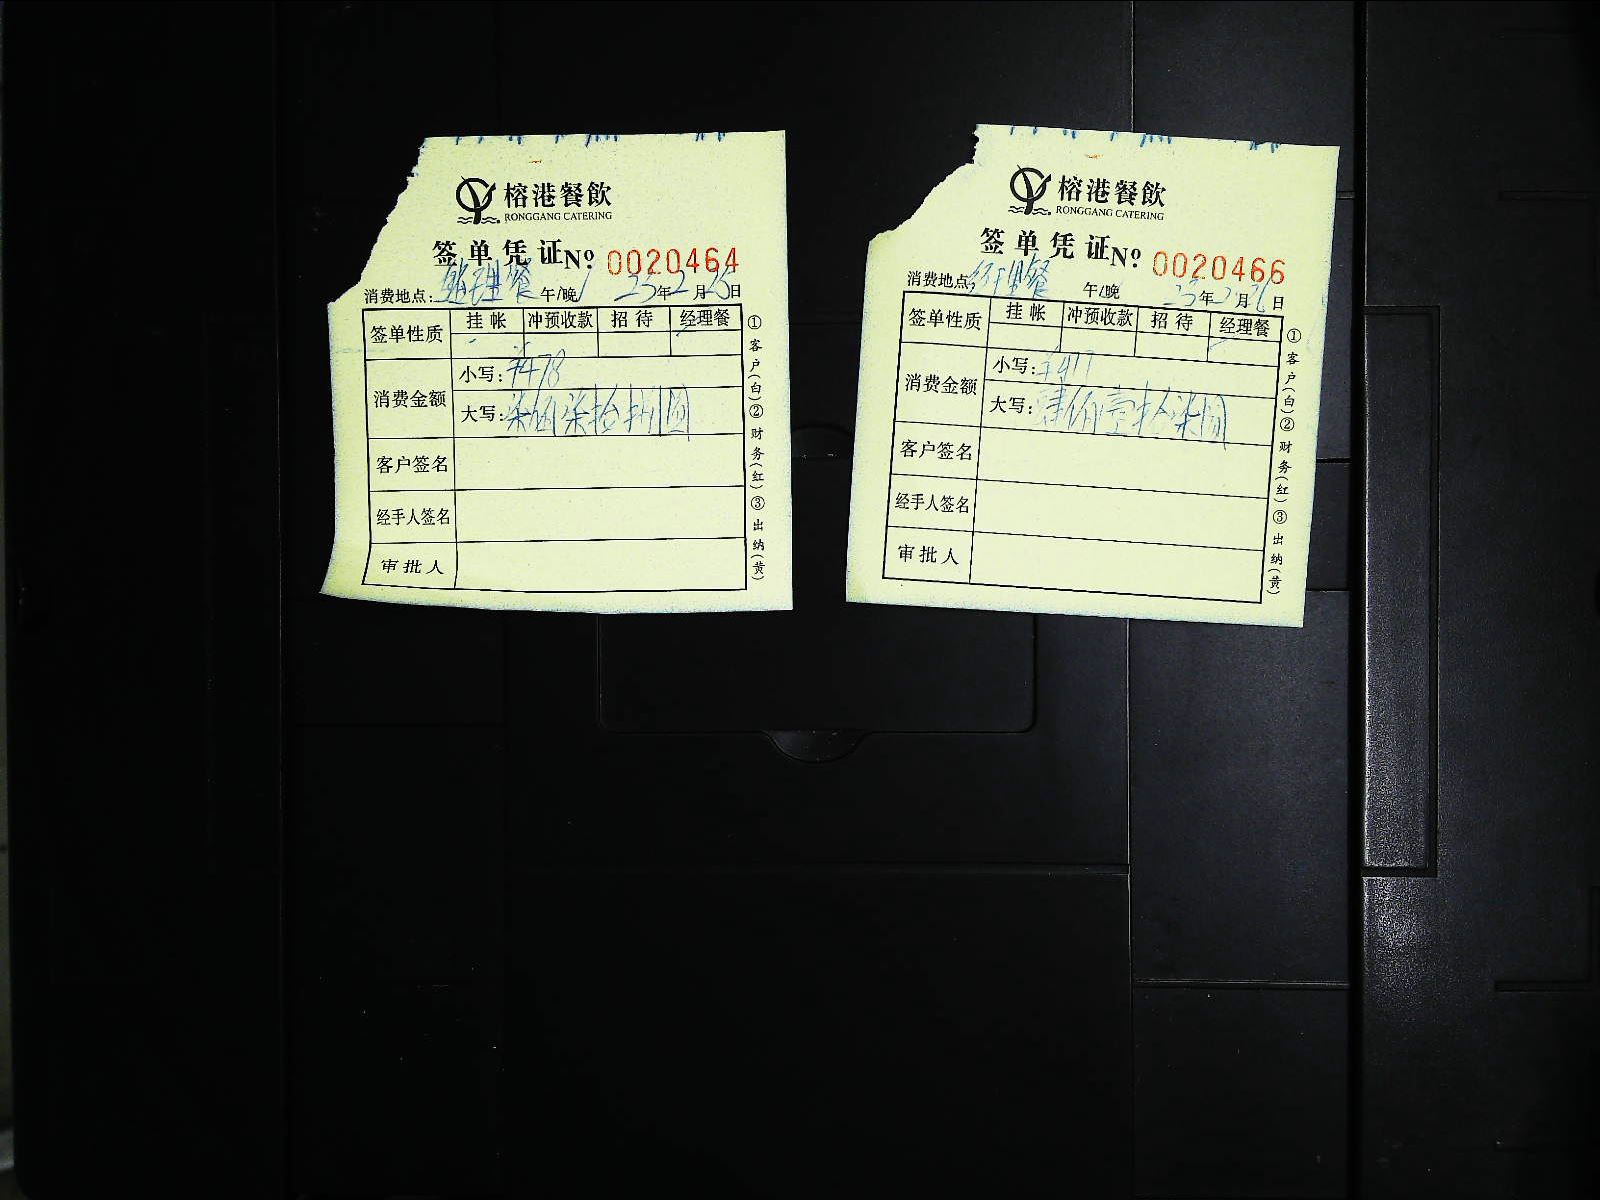 榕港餐飲
RONGGANG CATERING
签单凭证 No. 0020464
消费地点: 经理餐 午/晚 25年2月25日
签单性质 挂帐 冲预收款 招待 经理餐
消费金额
小写: ¥478
大写: 柒佰柒拾捌圆
客户签名
经手人签名
审批人
①客户(白)②财务(红)③出纳(黄)
榕港餐飲
RONGGANG CATERING
签单凭证 No. 0020466
消费地点: 经理餐 午/晚 25年2月26日
签单性质 挂帐 冲预收款 招待 经理餐
消费金额
小写: ¥417
大写: 肆佰壹拾柒圆
客户签名
经手人签名
审批人
①客户(白)②财务(红)③出纳(黄)